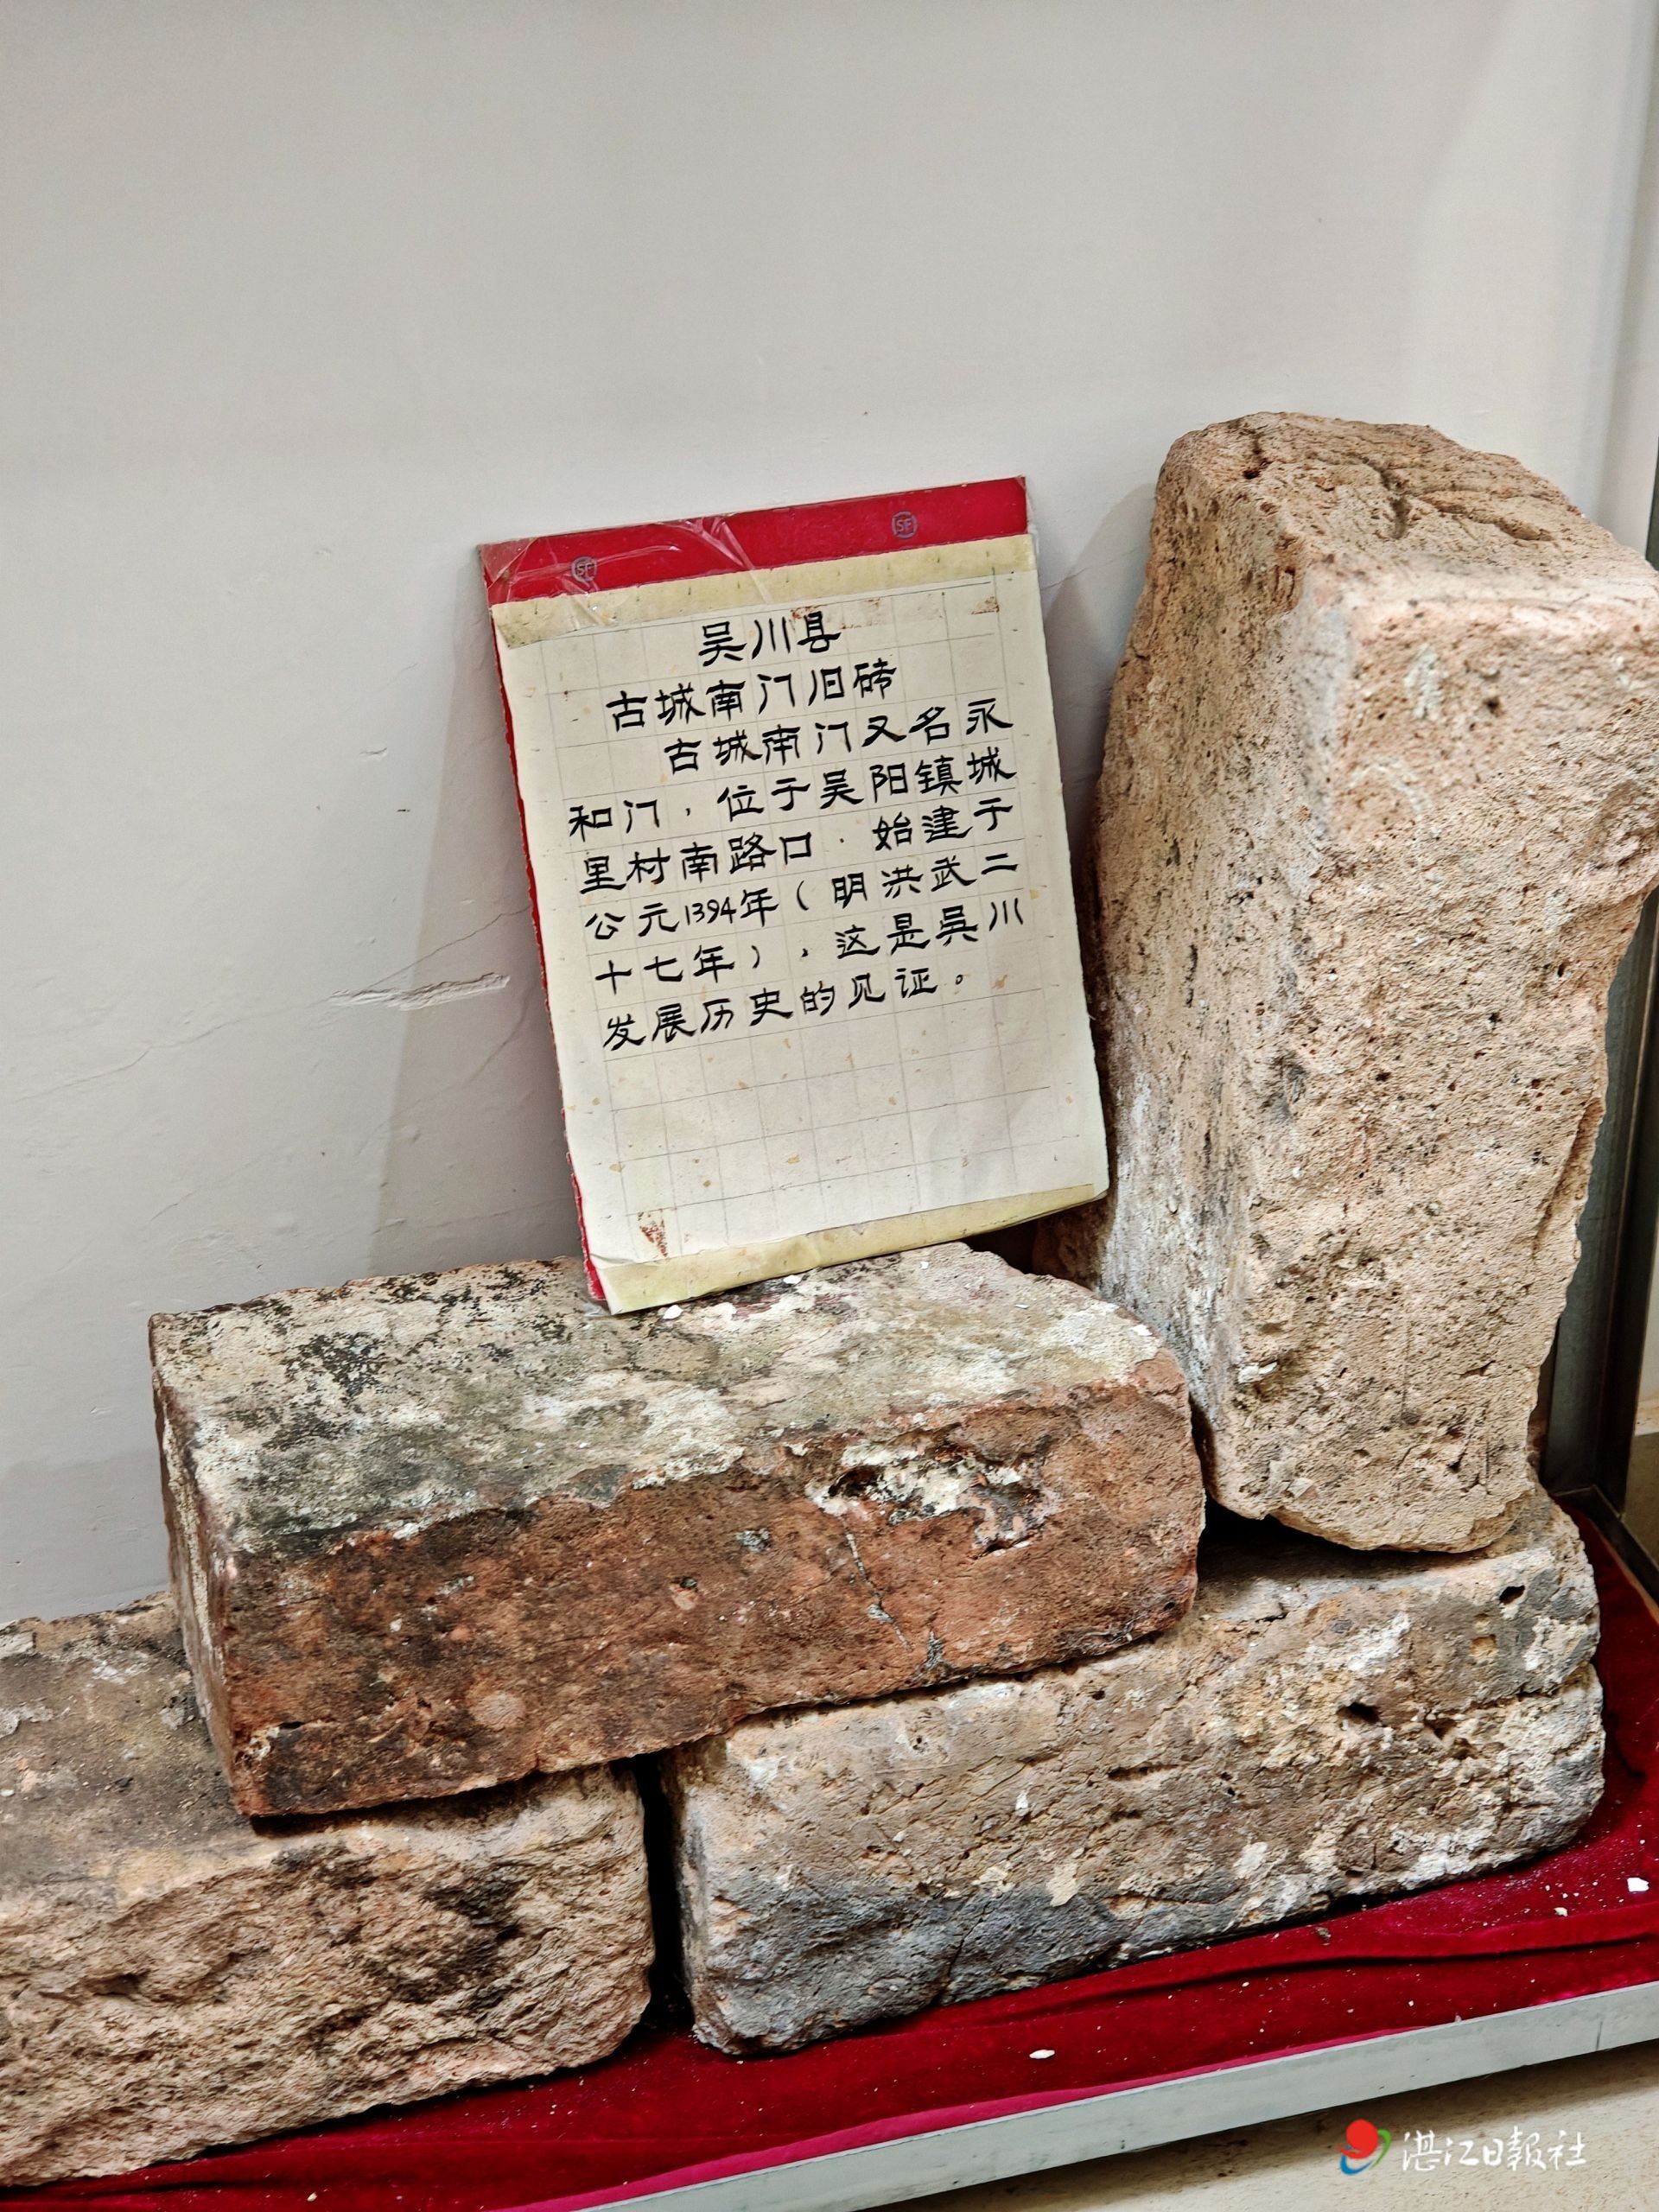 SF
SF
吴川县
古城南门旧砖
古城南门又名永
和门，位于吴阳镇城
里村南路口．始建于
公元1394年（明洪武二
十七年），这是吴川
发展历史的见证。
湛江日報社